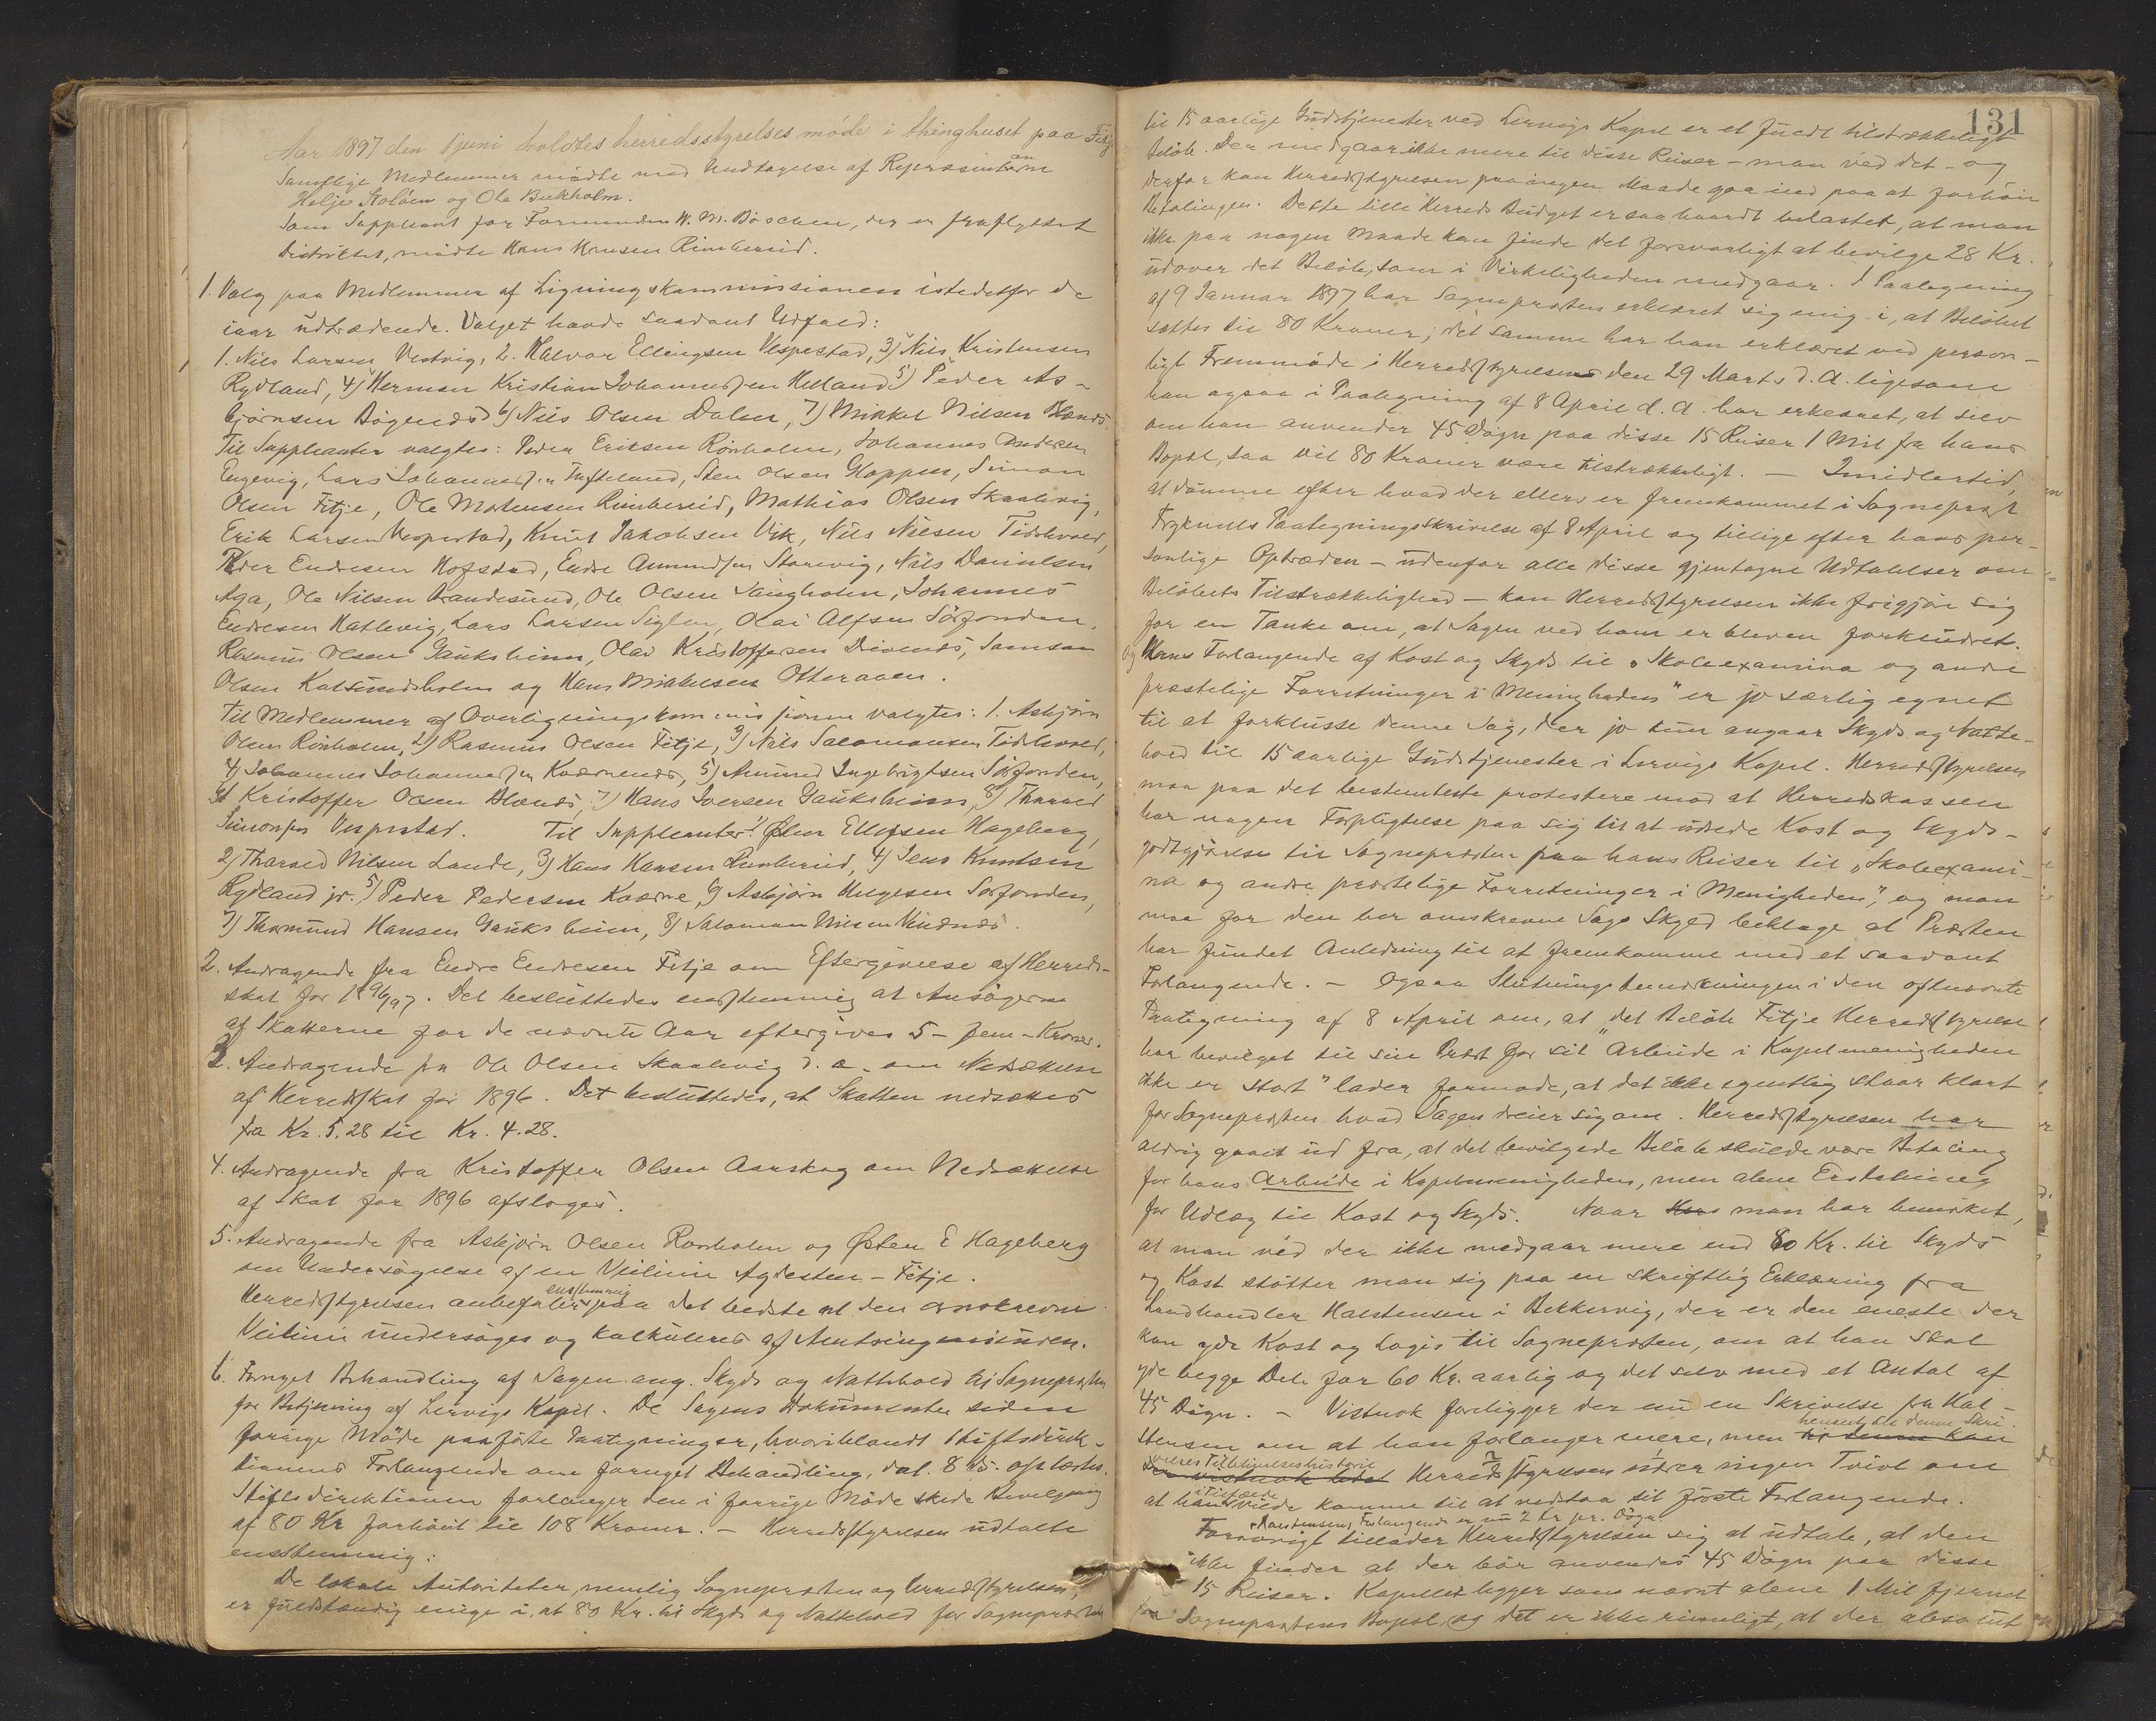 Aar 1897 den 1 juni holdtes herredsstyrelses møde i thinghuset paa Fitje
Samtlige Medlemmer mødte med Undtagelse af Repræsentanterne
Helje Stoløen og Ole Brekholm.
Som Suppleant for Formanden W. M. Døschen, der er fraflyttet
Distriktet, mødte Hans Hansen Rimbereid.
1. Valg paa Medlemmer af Ligningskommissionen istedetfor de
iaar udtrædende. Valget havde saadant Udfald:
1. Nils Larsen Vestvig, 2. Halvor Ellingsen Vespestad, 3) Nils Kristensen
Rydland, 4) Herman Kristian Johannessen Helland 5) Peder As-
bjørnsen Bøgenæs 6) Nils Olsen Dalen, 7) Mikkel Nilsen Blænæs.
Til Suppleanter valgtes: Peder Eriksen Rönholm, Johannes Andersen
Engevig, Lars Johannessen Tufteland, Sten Olsen Gloppen, Simon
Olsen Fitje, Ole Mortensen Rimbereid, Mathias Olsen Skaalevig,
Erik Larsen Vespestad, Knut Jakobsen Vik, Nils Nilsen Tislevold,
Peder Endresen Hofstad, Endre Amundsen Storevig, Nils Danielsen
Aga, Ole Nilsen Brandesund, Ole Olsen Langholm, Johannes
Endresen Hatlevig, Lars Larsen Siglen, Olai Alfsen Sørfonden,
Rasmus Olsen Gauksheim, Olav Kristoffersen Drivenæs, Samson
Olsen Kalsundholm og Hans Mikkelsen Otteraaen.
Til Medlemmer af Overligningskommissionen valgtes: 1. Asbjørn
Olsen Rönholm, 2) Rasmus Olsen Fitje, 3) Nils Salomonsen Tislevold,
4) Johannes Johannessen Kværnenæs, 5) Amund Ingebrigtsen Sørfonden,
6) Kristoffer Olsen Blænæs, 7) Hans Iversen Gauksheim, 8) Tharald
Simonsen Vespestad. Til Suppleanter: 1) Østen Ellefsen Hageberg,
2) Tharald Nilsen Lande, 3) Hans Hansen Rimbereid, 4) Jens Knutsen
Rydland jr. 5) Peder Pedersen Kværne, 6) Asbjørn Helgesen Sørfonden,
7) Thormund Hansen Gauksheim, 8) Salomon Nilsen
2. Andragende fra Endre Endresen Fitje om Eftergivelse af Herreds-
skat for 1896/97. Det besluttedes enstemmig at Ansøgerne
af Skatterne for de nævnte Aar eftergives 5 - fem - Kroner.
3. Andragende fra Ole Olsen Skaalevig d. æ. om Nedsættelse
af Herredsskat for 1896. Det besluttedes, at Skatten nedsættes
fra Kr. 5.28 til Kr. 4.28.
4. Andragende fra Kristoffer Olsen Aarskog om Nedsættelse
af Skat for 1896 afsloges.
5. Andragende fra Asbjørn Olsen Rönholm og Østen E Hageberg
om Undersøgelse af en Veilinie Agdesten - Fitje.
Herredsstyrelsen anbefaler enstemmig paa det bedste at den omskrevne
Veilinie undersøges og kalkuleres af Amtsingeniøren.
6. Fornyet Behandling af Sagen ang. Skyds og Nattehold til Sognepræsten
for Betjening af Lervigs Kapel. De Sagens Dokumenter siden
forrige Møde paaførte Paategninger, hvoriblandt Stiftsdirek-
tionens Forlangende om fornyet Behandling, dat. 8 ds. oplæstes.
Stiftsdirektionen forlanger den i forrige Møde skede Bevilgning
af 80 Kr forhøiet til 108 Kroner. - Herredsstyrelsen udtalte
enstemmig:
De lokale Autoriteter, nemlig Sognepræsten og Herredsstyrelsen,
er fuldstændig enige i, at 80 Kr. til Skyds og Nattehold for Sognepræsten
131
til 15 aarlige Gudstjenester ved Lervigs Kapel er et fuldt tilstrækkeligt
Beløb. Der medgaar ikke mere til disse Reiser - man ved det - og
derfor kan Herredsstyrelsen paa ingen Maade gaa ind paa at forhøie
Betalingen. Dette lille Herreds Budget er saa haardt belastet, at man
ikke paa nogen Maade kan finde det forsvarligt at bevilge 28 Kr.
udover det Beløb, som i Virkeligheden medgaar. I Paategning
af 9 Januar 1897 har Sognepræsten erklæret sig enig i, at Beløbet
sættes til 80 Kroner; det samme har han erklæret ved person-
ligt Fremmøde i Herredsstyrelsen den 29 Marts d. A. ligesom
han ogsaa i Paategning af 8 April d. A. har erklæret, at selv
om han anvender 45 Døgn paa disse 15 Reiser 1 Mil fra hans
Bopæl, saa vil 80 Kroner være tilstrækkeligt. - Imidlertid,
at dømme efter hvad der ellers er fremkommet i Sognepræst
Frykmans Paategningsskrivelse af 8 April og tillige efter hans per-
sonlige Optræden - udenfor alle disse gjentagne Udtalelser om
Beløbets Tilstrækkelighed - kan Herredsstyrelsen ikke frigjøre sig
for en Tanke om, at Sagen ved ham er bleven forkludret.
og Hans Forlangende af Kost og Skyds til "Skoleexamina og andre
præstelige Forretninger i Menigheden" er jo særlig egnet
til at forklusse denne Sag, der jo kun angaar Skyds og Natte-
hold til 15 aarlige Gudstjenester i Lervigs Kapel. Herredsstyrelsen
maa paa det bestemteste protestere mod at Herredskassen
har nogen Forpligtelse paa sig til at udrede Kost og Skyds-
godtgjørelse til Sognepræsten paa hans Reiser til "Skoleexami-
na og andre præstelige Forretninger i Menigheden", og man
maa for den her omskrevne Sags Skyld beklage at Præsten
har fundet Anledning til at fremkomme med et saadant
Forlangende. - Ogsaa Slutningsbemærkningen i den oftnævnte
Paategning af 8 April om, at "det Beløb Fitje Herredsstyrelse
har bevilget til sin Præst for sit Arbeide i Kapelmenigheden
ikke er stort" lader formode, at det ikke egentlig staar klart
for Sognepræsten hvad Sagen dreier sig om. Herredsstyrelsen har
aldrig gaaet ud fra, at det bevilgede Beløb skulde være Betaling
for hans Arbeide i Kapelmenigheden, men alene Erstatning
for Udlæg til Kost og Skyds. Naar Hans man har bemærket,
at man ved der ikke medgaar mere end 80 Kr. til Skyds
og Kost støtter man sig paa en skriftlig Erklæring fra
Landhandler Halstensen i Bekkervig, der er den eneste der
kan yde Kost og Logis til Sognepræsten, om at han skal
yde begge Dele for 60 Kr. aarlig og det selv med et Antal af
45 Døgn. - Vistnok foreligger der nu en Skrivelse fra Hal-
stensen om at han forlanger mere, men til denne kan hensees til denne Skri-
velses Tilblivelseshistorie der vistnok Herredsstyrelsen nærer ingen Tvivl om
at han i Tilfælde vilde komme til at vedtaa sit første Forlangende.
Halstensens Forlangende er nu 2 Kr pr. Døgn.
Forøvrigt tillader Herredsstyrelsen sig at udtale, at den
ikke finder at der bør anvendes 45 Døgn paa disse
15 Reiser. Kapellet ligger som nævnt alene 1 Mil fjernet
fra Sognepræstens Bopæl og det er ikke rimeligt, at der absolut